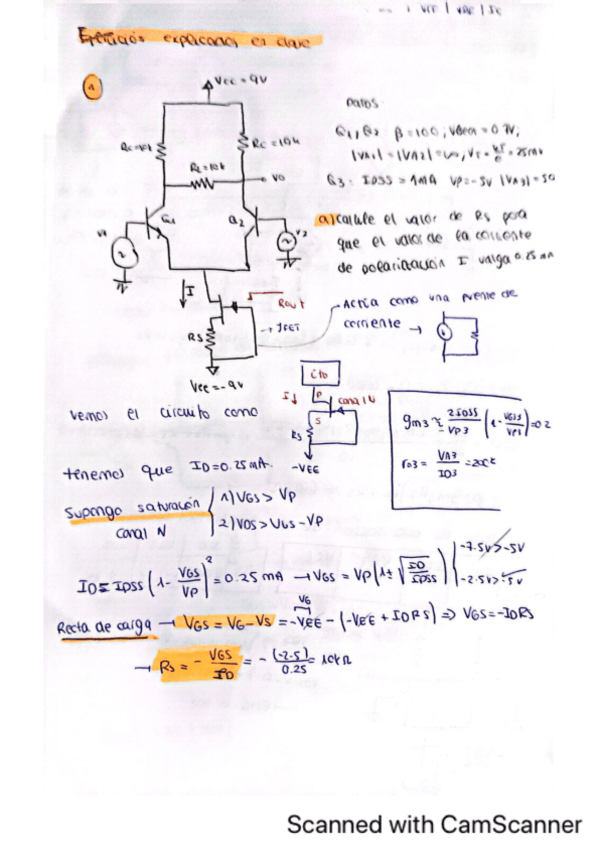 Ejercicios explicados en clase
1
VCC = 9V
RC=10k
RC = 10k
RL=10k
VO
Q1
Q2
V1
V2
I
Rout
RS
→ JFET
VEE = -9V
Datos
Q1, Q2 β=100, VBEON = 0.7V,
|VA1| = |VA2| = ∞, VT = KT/e = 25mV
Q3: IDSS = 1mA VP=-5V |VA3| = 50
a) calcule el valor de RS para
que el valor de la corriente
de polarización I valga 0.25 mA
Actúa como una fuente de
corriente →
vemos el circuito como
cto
I↓
D
canal N
S
RS
-VEE
tenemos que ID=0.25mA.
gm3 ≈ 2IDSS/-VP3 (1 - VGS3/VP3) = 0.2
ro3 = VA3/ID3 = 200k
Supongo saturación
canal N
1) VGS > VP
2) VDS > VGS - VP
ID = IDSS (1 - VGS/VP)² = 0.25 mA → VGS = VP (1 ± √ID/IPSS)
-7.5V > -5V
-2.5V > -5V
VG
Recta de carga → VGS = VG - VS = -VEE - (-VEE + IDRS) => VGS = -IDRS
→ RS = - VGS/ID = - (-2.5)/0.25 = 10kΩ
Scanned with CamScanner